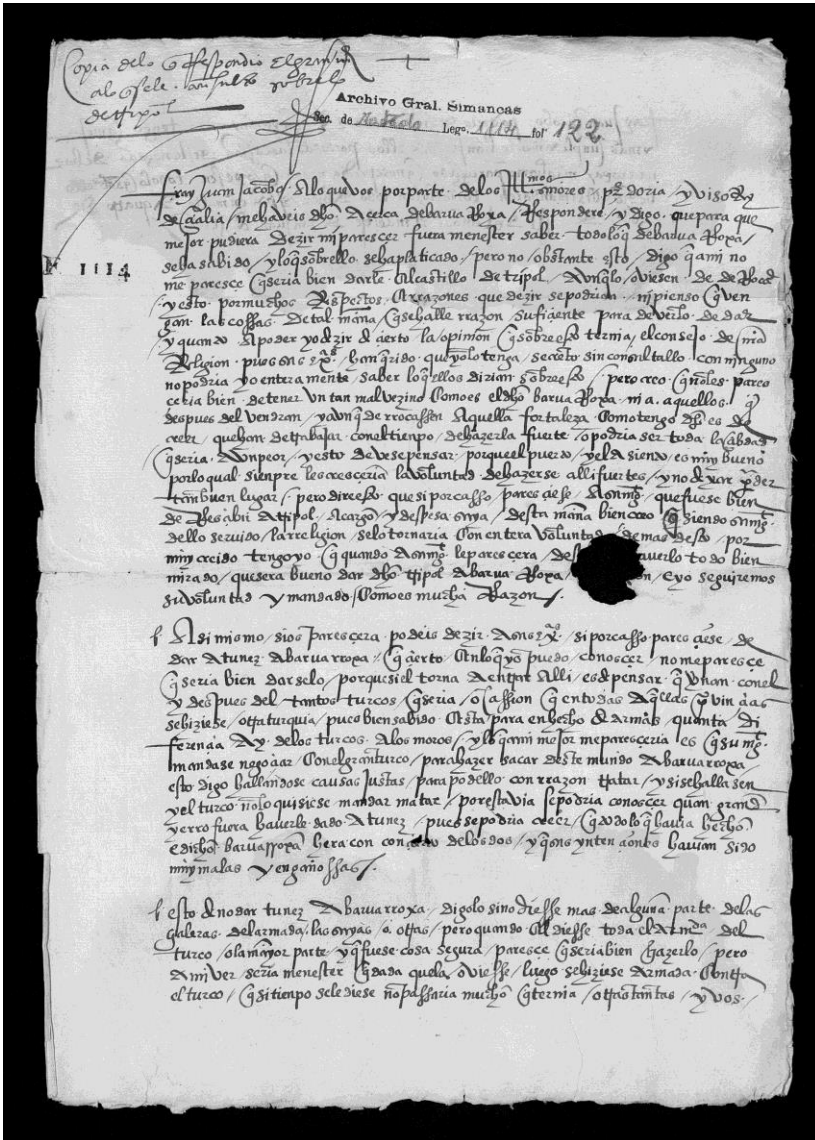 Copia delo q Respondio elgran m
alo q sele consulto sobrelo
de tripol
Archivo Gral. Simancas
Sec. de Estado Lego. 1114 fol 122
E 1114
fray Juan Jacobo. Alo que vos por parte. de los Illmos señores / po doria / y viso Rey
de Cicilia / me haveis dho. Acerca. de barva Roxa / Respondere / y digo. que para que
mejor pudiera dezir mi parescer fuera menester saber todo lo q de barva Roxa /
se ha sabido / y lo q sobrello se ha platicado / pero no obstante esto / digo q ami no
me paresce q seria bien darle Al castillo de tripol / Aun q lo oviesen de de Rocar
y esto por muchos Respectos. & rrazones que dezir se podrian. nj pienso q ven
gan. las cossas. de tal mana / q se halle rrazon suficiente para deverlo. de dar
y quanto Apoder yo dezir de çierto la opinion q sobresto ternia / el consejo. de mia
Religion. pues sus exas. han querido. que yo lo tenga / secreto sin consultallo con ninguno
no podria yo enteramente saber lo q ellos dirian sobresto / pero creo q no les parec
ceria bien. de tener un tan mal vezino Como es el dho barva Roxa. nj a. aquellos. q
despues del vendran / y avn q de rrocassen Aquella fortaleza Como tengo dho es de
creer. que han de trabajar. con el tienpo / de hazerla fuerte / o podria ser toda la çibdad
q seria. Aun peor / y esto deve se pensar. porque el puerto / y el asiento / es muy bueno
por lo qual sienpre les cresceria la voluntad de hazerse alli fuertes / y no dexar perder
tan buen lugar / pero dire esto que si por casso paresçiese / A su mgt. que fuese bien
de Resçebir A tripol. A cargo / y despesa suya / desta mana bien creo q siendo su mgt.
dello servido / la rreligion selo tornaria Con entera voluntad de mas desto / por
muy creido tengo yo. q quando A su mgt. le paresçera / des averlo todo bien
mirado / que sera bueno dar dho tripol A barva Roxa / on, e yo seguiremos
su voluntad y mandado / Como es mucha Razon /.
Asi mismo / si os paresçera podeis dezir A sus exas / si por casso paresçiese. de
dar A tunez. A barvarroxa. q çierto Enlo q yo puedo conosçer / no me paresçe
q seria bien dar selo / porque si el torna de entrar Alli / es de pensar q yrian. con el
y despues del tantos turcos / q seria / o cassion q en todas Aq llas provinçias
se hiziese otra turquia / pues bien sabido Esta / para en hecho de Armas quanta di
ferençia Ay. de los turcos. A los moros / y lo q ami mejor me paresçeria es q su mgt.
mandase negoçiar. Con el gran turco / para hazer sacar deste mundo A barvarroxa
esto digo hallandose causas Justas / para podello con rrazon tratar / y si se hallasen
y el turco no lo quisiese mandar matar / por esta via se podria conosçer quan grand
yerro fuera haverle dado A tunez / pues se podria creer / q todo lo q havia hecho
e dicho barvarroxa hera con conçierto delos dos / y q sus yntençiones havian sido
muy malas y engañossas /.
esto de no dar tunez A barvarroxa / digolo sino diesse mas. de alguna parte. delas
galeras. del armada / las suyas / o otras / pero quando El diesse toda el Armda del
turco / o la mayor parte / y q fuese cosa segura / paresçe q seria bien hazerlo / pero
A mi ver seria menester q dada que la oviesse / luego se hiziese Armada Contra
el turco / q si tienpo sele diese no passaria mucho q ternia / otras tantas / y vos /